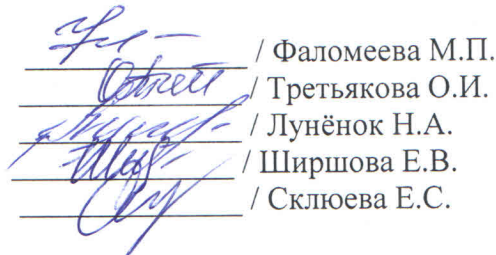 / Фаломеева М.П.
/ Третьякова О.И.
/ Лунёнок Н.А.
/ Ширшова Е.В.
/ Склюева Е.С.